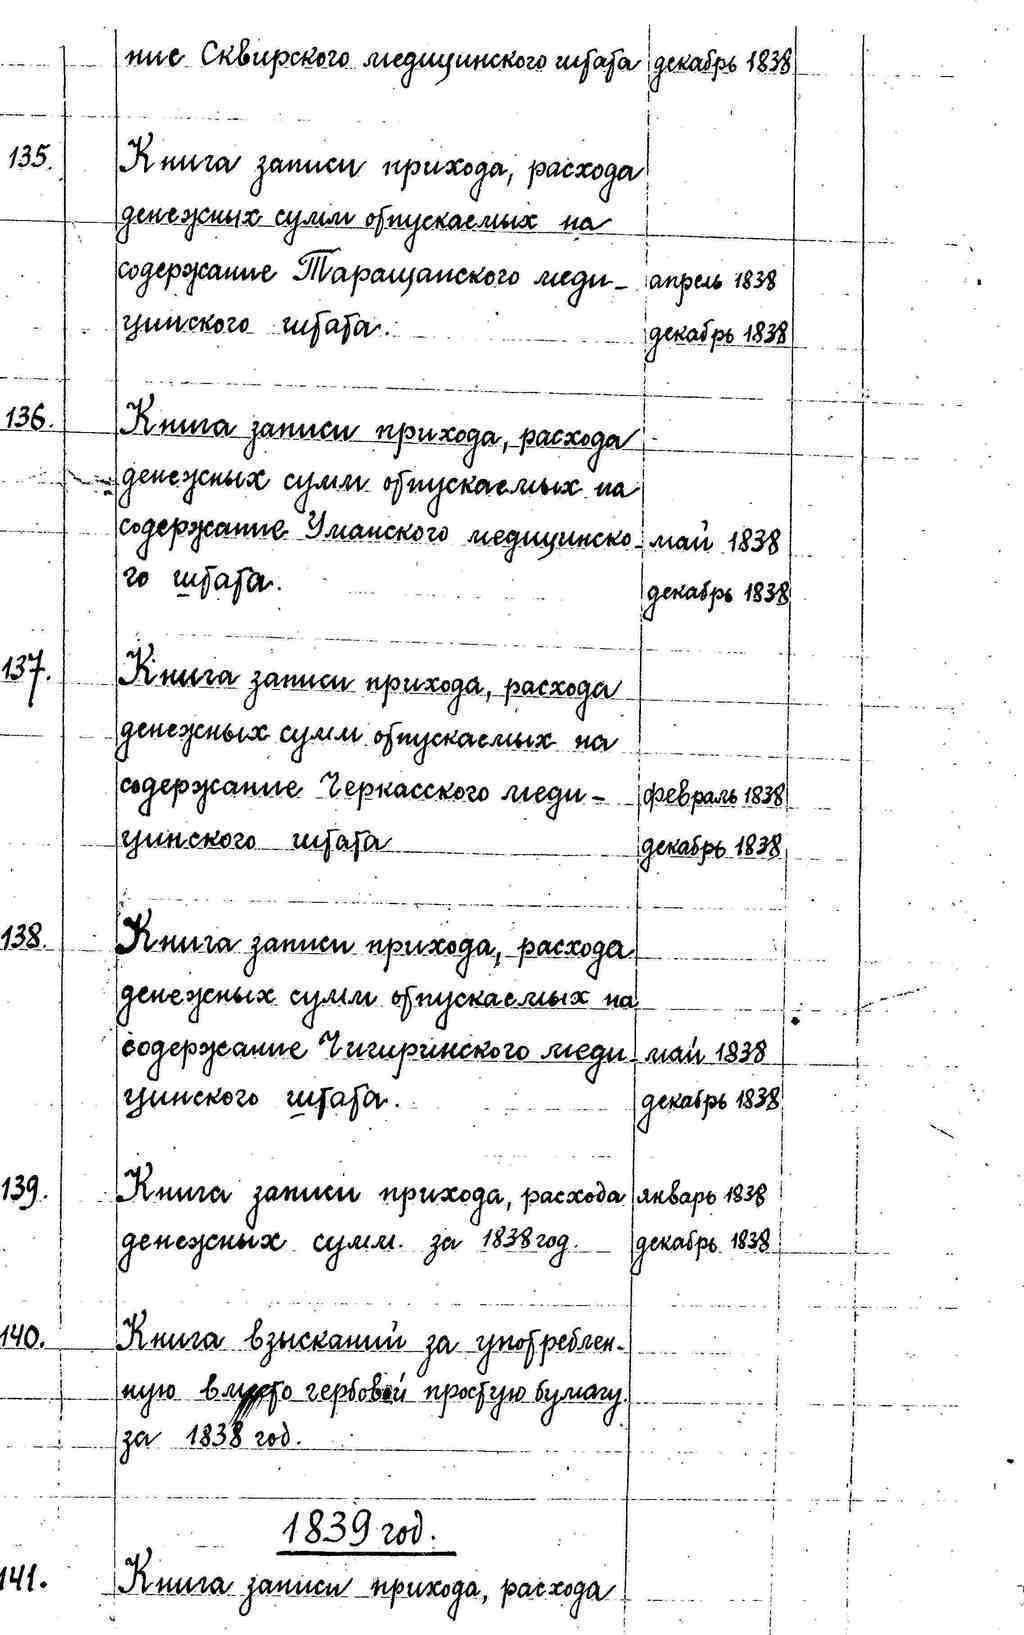 ние Сквирского медицинского штата декабрь 1838
135. Книга записи прихода, расхода
денежных сумм отпускаемых на
содержание Таращанского меди- апрель 1838
цинского штата. декабрь 1838
136. Книга записи прихода, расхода
денежных сумм отпускаемых на
содержание Уманского медицинско- май 1838
го штата. декабрь 1838
137. Книга записи прихода, расхода
денежных сумм отпускаемых на
содержание Черкасского меди- февраль 1838
цинского штата декабрь 1838
138. Книга записи прихода, расхода
денежных сумм отпускаемых на
содержание Чигиринского меди- май 1838
цинского штата. декабрь 1838
139. Книга записи прихода, расхода январь 1838
денежных сумм. за 1838 год. декабрь 1838
140. Книга взысканий за употреблен-
ную вместо гербовой простую бумагу.
за 1838 год.
1839 год.
141. Книга записи прихода, расхода